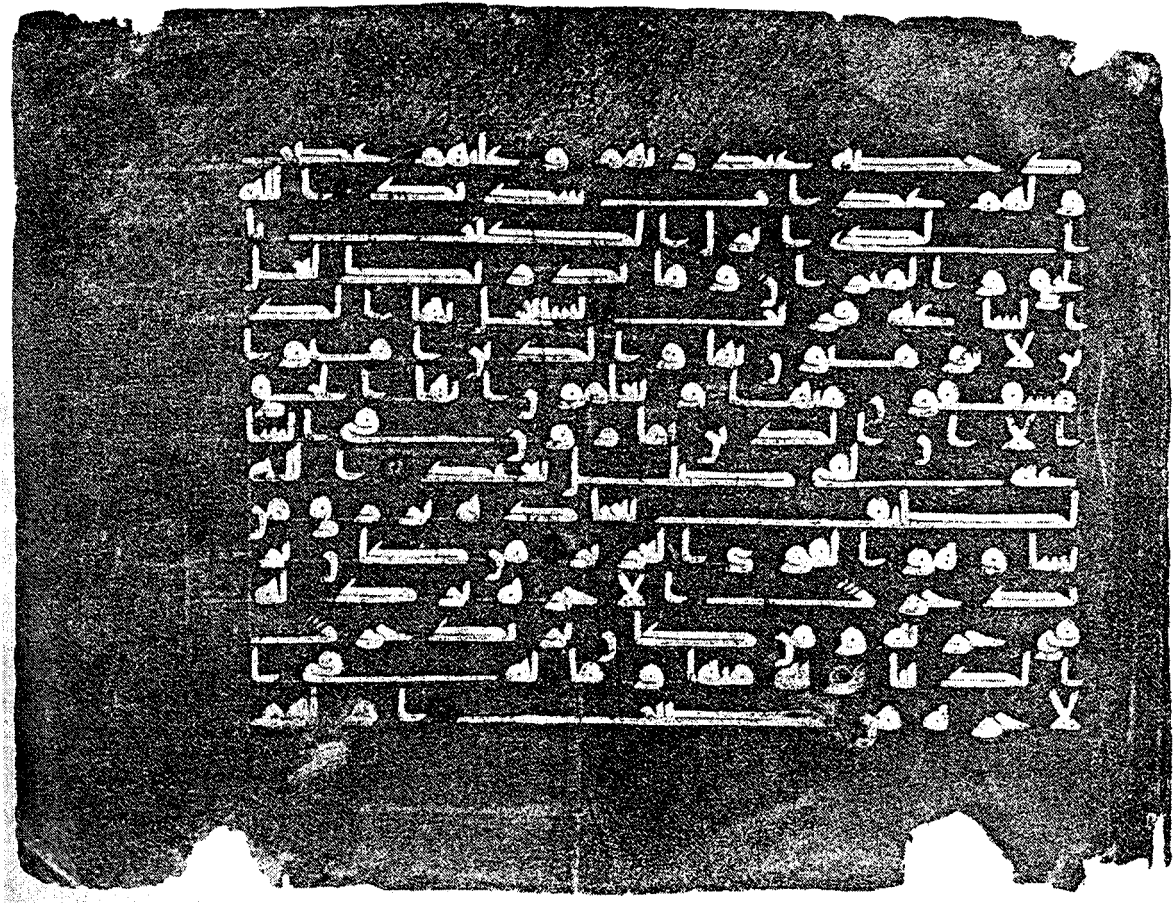 دحضه عند ربهم و عليهم غضب
و لهم عذاب شديد الله
الذي انزل الكتب با
لحق و الميزن و ما يدريك لعل
الساعه قريب يستعجل بها الذ
ين لا يومنون بها و الذين امنوا
مشفقون منها و يعلمون انها الحق
الا ان الذين يمارون في السا
عه لفي ضلل بعيد الله
لطيف بعباده يرزق من
يشا و هو القوي العزيز من كان ير
يد حرث الاخره نزد له
في حرثه و من كان يريد حر
ث الدنيا نوته منها و ما له في ا
لاخره من نصيب ام لهم